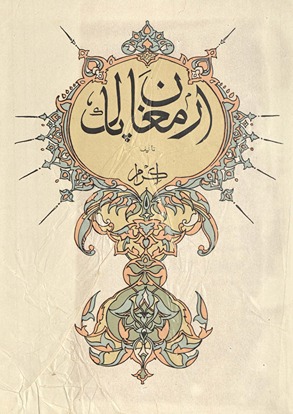 ارمغان پاک
تالیف
اکرام